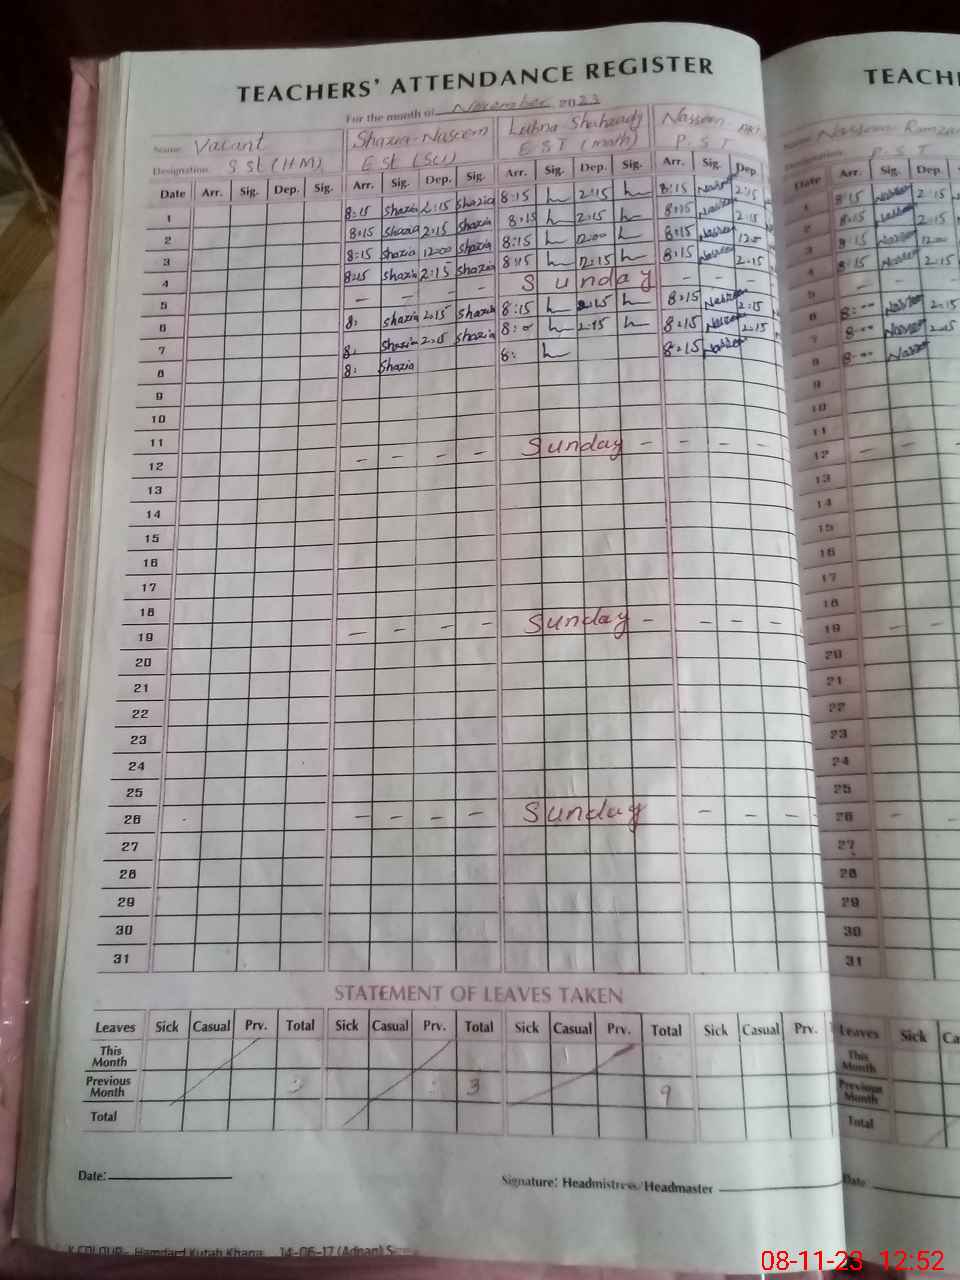 TEACHERS' ATTENDANCE REGISTER
For the month of November 2023
Name Vacant Shazia Naseem Lubna Shahzady Nasreen
Designation SSt (HM) Est (Sci) EST (math) P.S.T
Date Arr. Sig. Dep. Sig. Arr. Sig. Dep. Sig. Arr. Sig. Dep. Sig. Arr. Sig. Dep.
1 8:15 Shazia 2:15 Shazia 8:15 2:15 8:15 Nasreen 2:15
2 8:15 Shazia 2:15 Shazia 8:15 2:15 8:15 Nasreen 2:15
3 8:15 Shazia 12:00 Shazia 8:15 12:00 8:15 Nasreen
4 8:15 Shazia 2:15 Shazia 8:15 8:15 Nasreen 2:15
5 – – – – Sunday – –
6 8: Shazia 2:15 Shazia 8:15 2:15 8:15 Nasreen 2:15
7 8: Shazia 2:15 Shazia 2:15 8:15 Nasreen 2:15
8 8: Shazia 8: 8:15 Nasreen
9
10
11
12 – – – – Sunday – – – –
13
14
15
16
17
18
19 – – – – Sunday – – – –
20
21
22
23
24
25
26 – – – – Sunday – – – –
27
28
29
30
31
STATEMENT OF LEAVES TAKEN
Leaves Sick Casual Prv. Total Sick Casual Prv. Total Sick Casual Prv. Total Sick Casual Prv.
This Month
Previous Month 3 9
Total
Date: Signature: Headmistress/Headmaster
Hamdard Kutab Khana 14-06-17 (Adnan)
TEACH
Naseem Ramzan
Designation P.S.T
Date Arr. Sig. Dep.
1 8:15 2:15
2 8:15 2:15
3 8:15 12:00
4 8:15 2:15
5 – – –
6 2:15
7 2:15
8
9
10
11
12 – –
13
14
15
16
17
18
19 – –
20
21
22
23
24
25
26 – –
27
28
29
30
31
Leaves Sick Ca
This Month
Previous Month
Total
Date
08-11-23 12:52